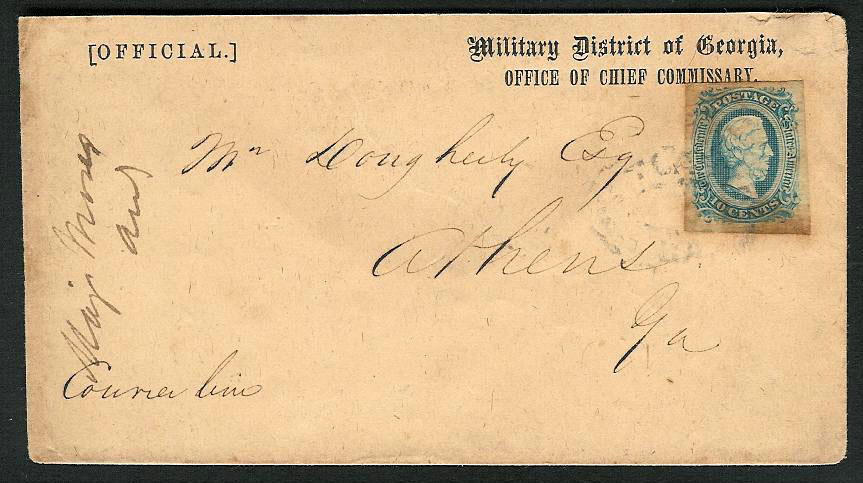 [OFFICIAL.]
Military District of Georgia,
OFFICE OF CHIEF COMMISSARY.
POSTAGE
The Confederate States of America
10 CENTS
Mr Dougherty Esq
Athens
Ga
Maj. Moses
Courier line